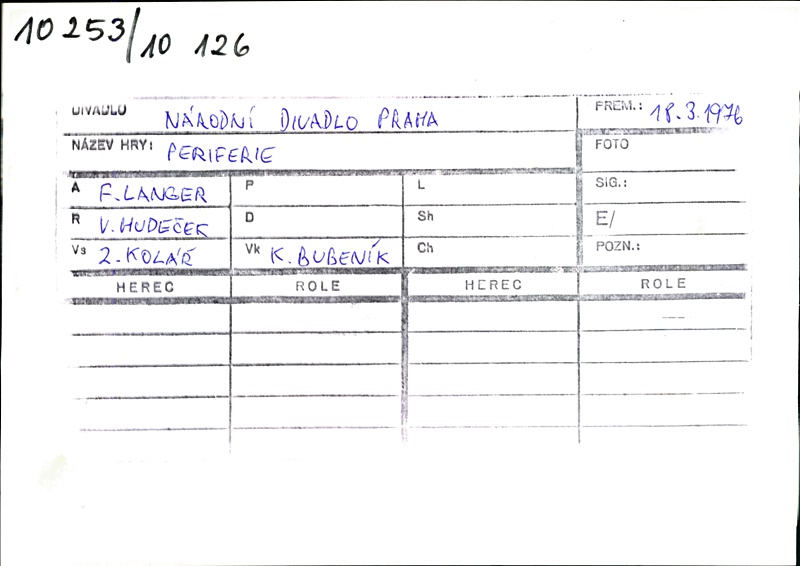 10 253/10 126
DIVADLO NÁRODNÍ DIVADLO PRAHA PREM.: 18.3.1976
NÁZEV HRY: PERIFERIE FOTO
A F. LANGER P L SIG.:
R V. HUDEČEK D Sh E/
Vs Z. KOLÁŘ Vk K. BUBENÍK Ch POZN.:
HEREC ROLE HEREC ROLE